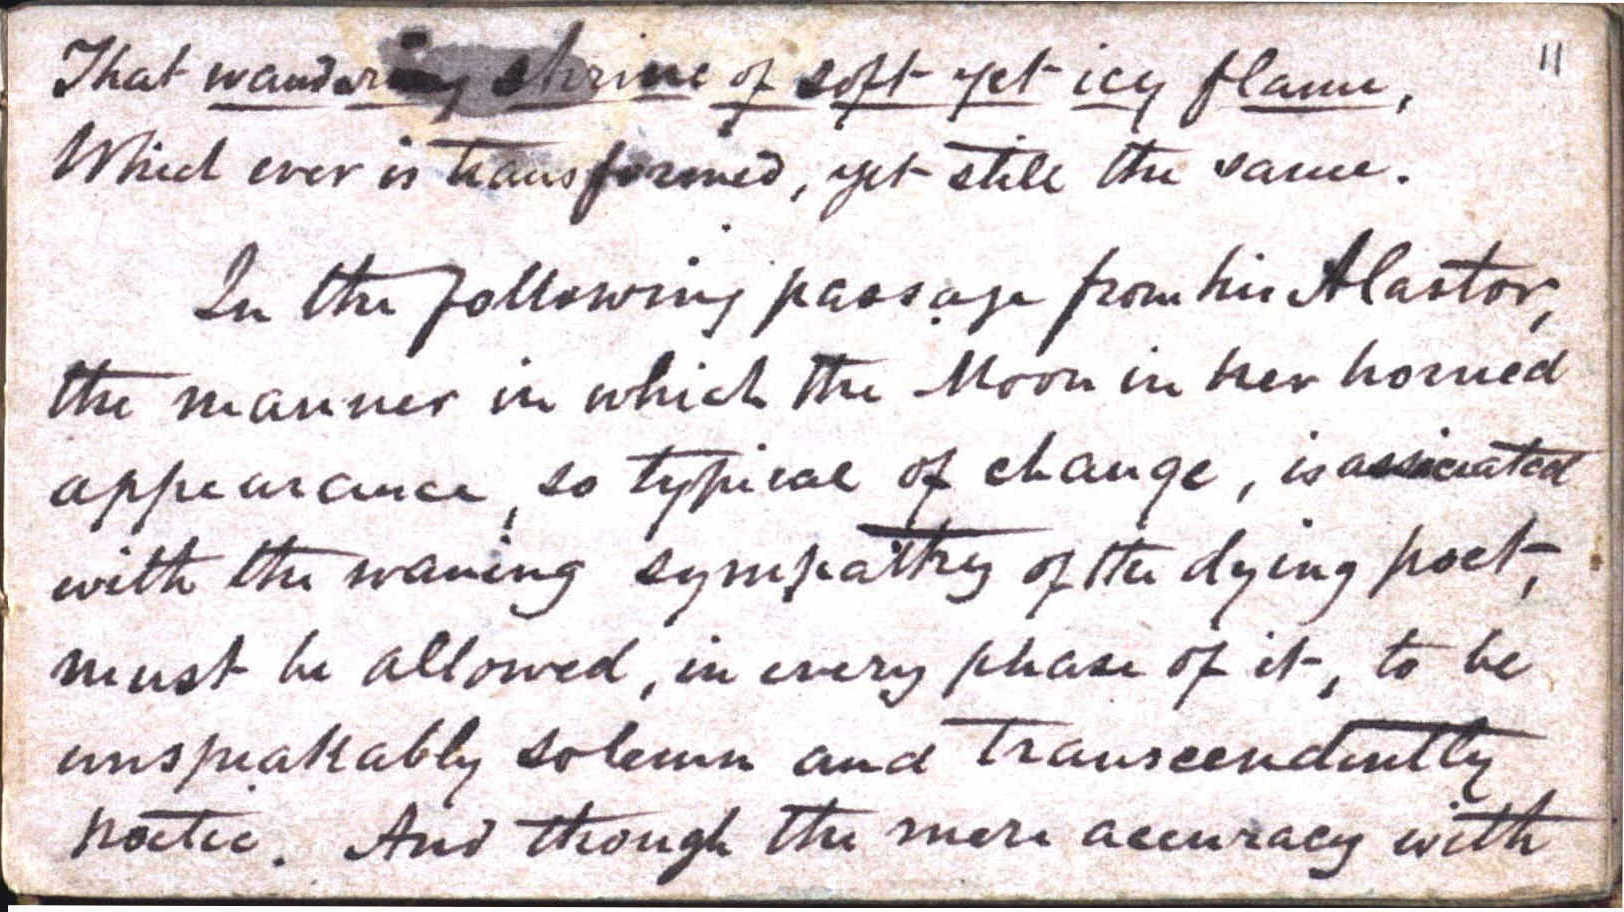 11
That wandering shrine of soft yet icy flame,
Which ever is transformed, yet still the same.
In the following passage from his Alastor,
the manner in which the Moon in her horned
appearance, so typical of change, is associated
with the waning sympathy of the dying poet,
must be allowed, in every phase of it, to be
unspeakably solemn and transcendently
poetic. And though the mere accuracy with